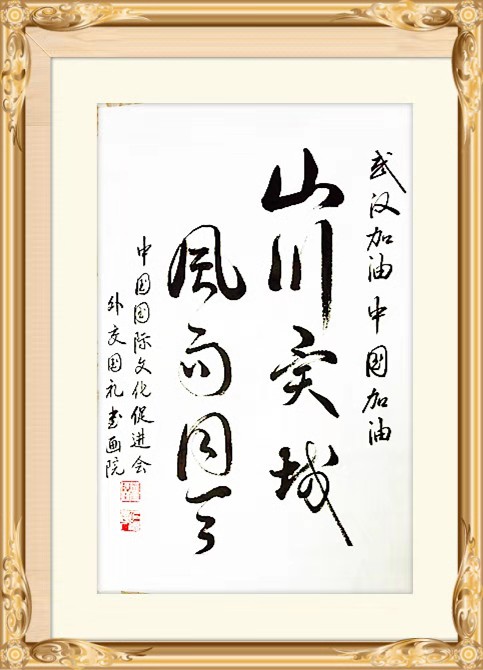 武汉加油中国加油
山川异域
風雨同天
中国国际文化促进会
外交国礼书画院